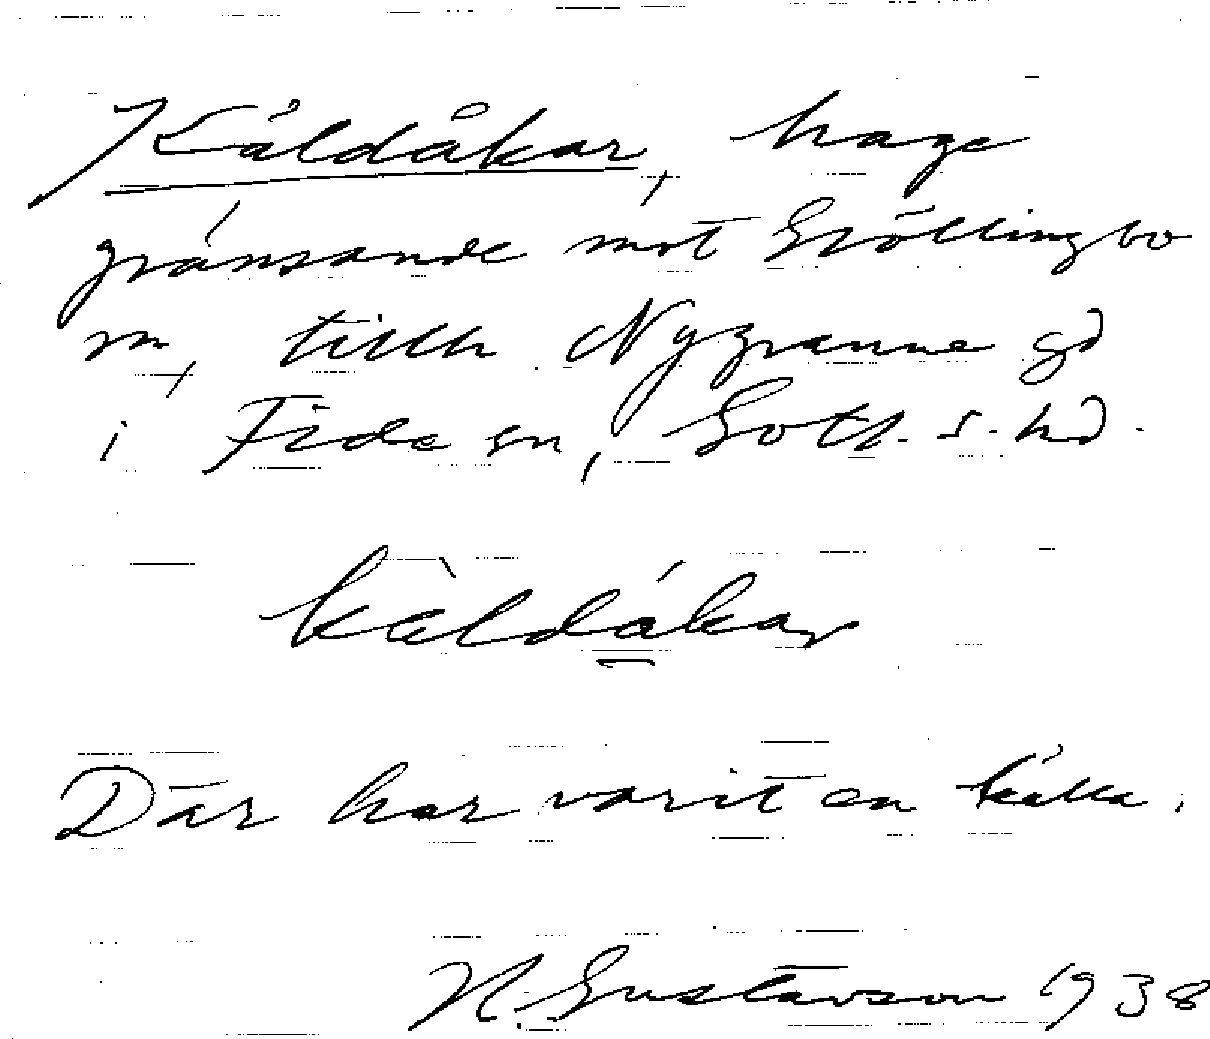 Käldåkar, hage
gränsande mot Grötlingbo
sn, tillh Nygranne gd
i Fide sn, Gotl. s. hd.
kàldákar
Där har varit en källa.
H. Gustavson 1938